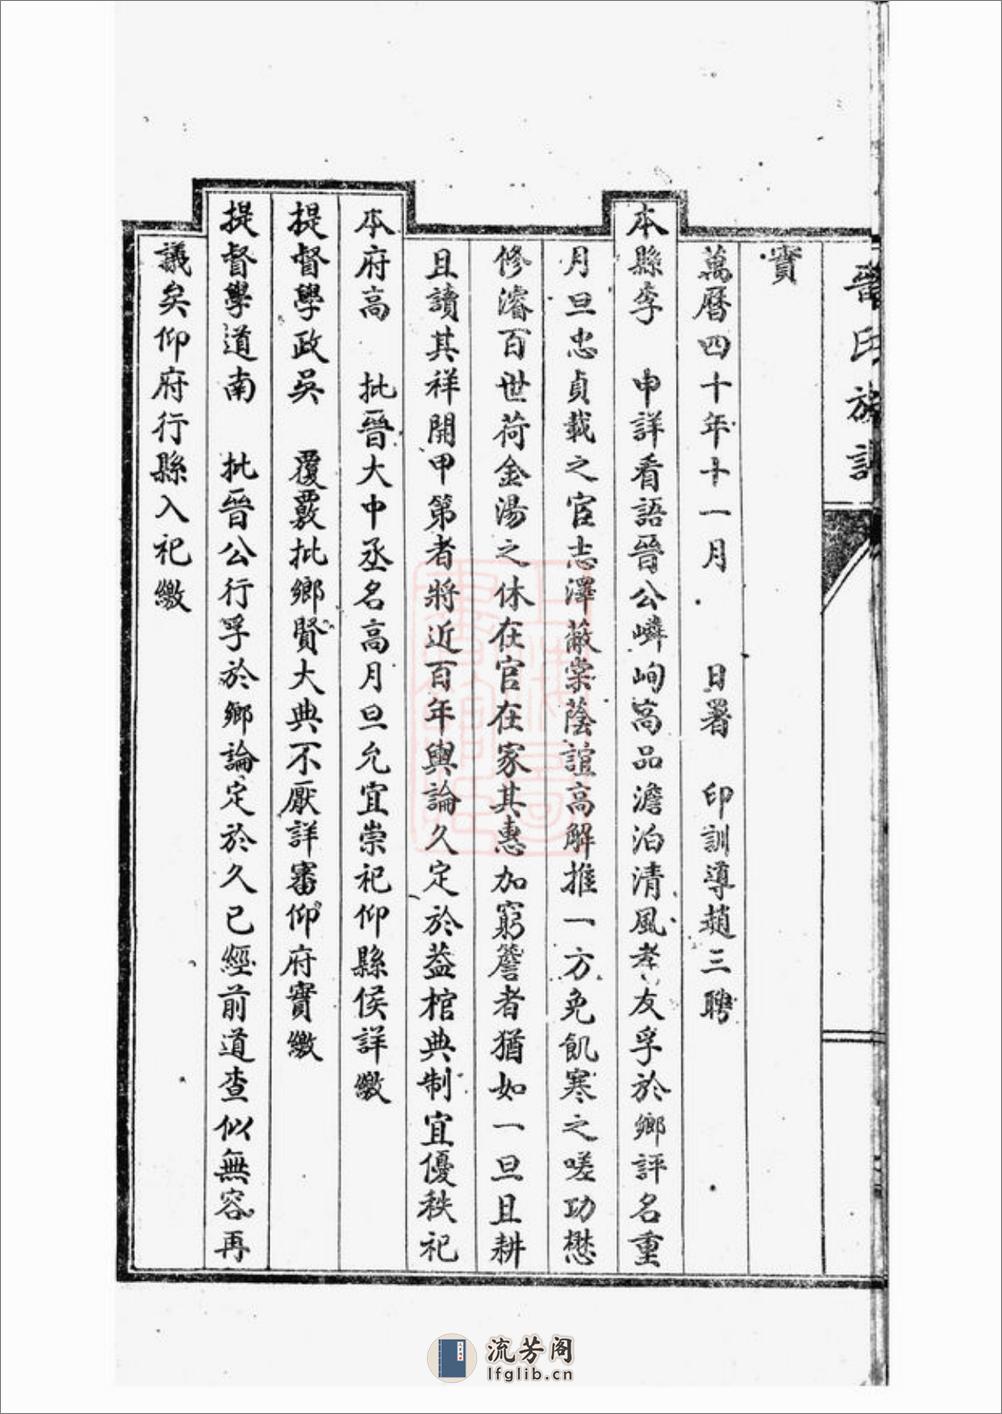 晉氏族譜
實
萬曆四十年十一月　日署　印訓導趙三聘
本縣李　申詳看語晉公嶙峋高品澹泊清風孝友孚於鄉評名重
月旦忠貞載之宦志澤蔽棠蔭誼高解推一方免飢寒之嗟功懋
修濬百世荷金湯之休在官在家其惠加窮簷者猶如一旦且耕
且讀其祥開甲第者將近百年輿論久定於蓋棺典制宜優秩祀
本府高　批晉大中丞名高月旦允宜崇祀仰縣侯詳繳
提督學政吳　覆覈批鄉賢大典不厭詳審仰府實繳
提督學道南　批晉公行孚於鄉論定於久已經前道查似無容再
議矣仰府行縣入祀繳
流芳阁
lfglib.cn